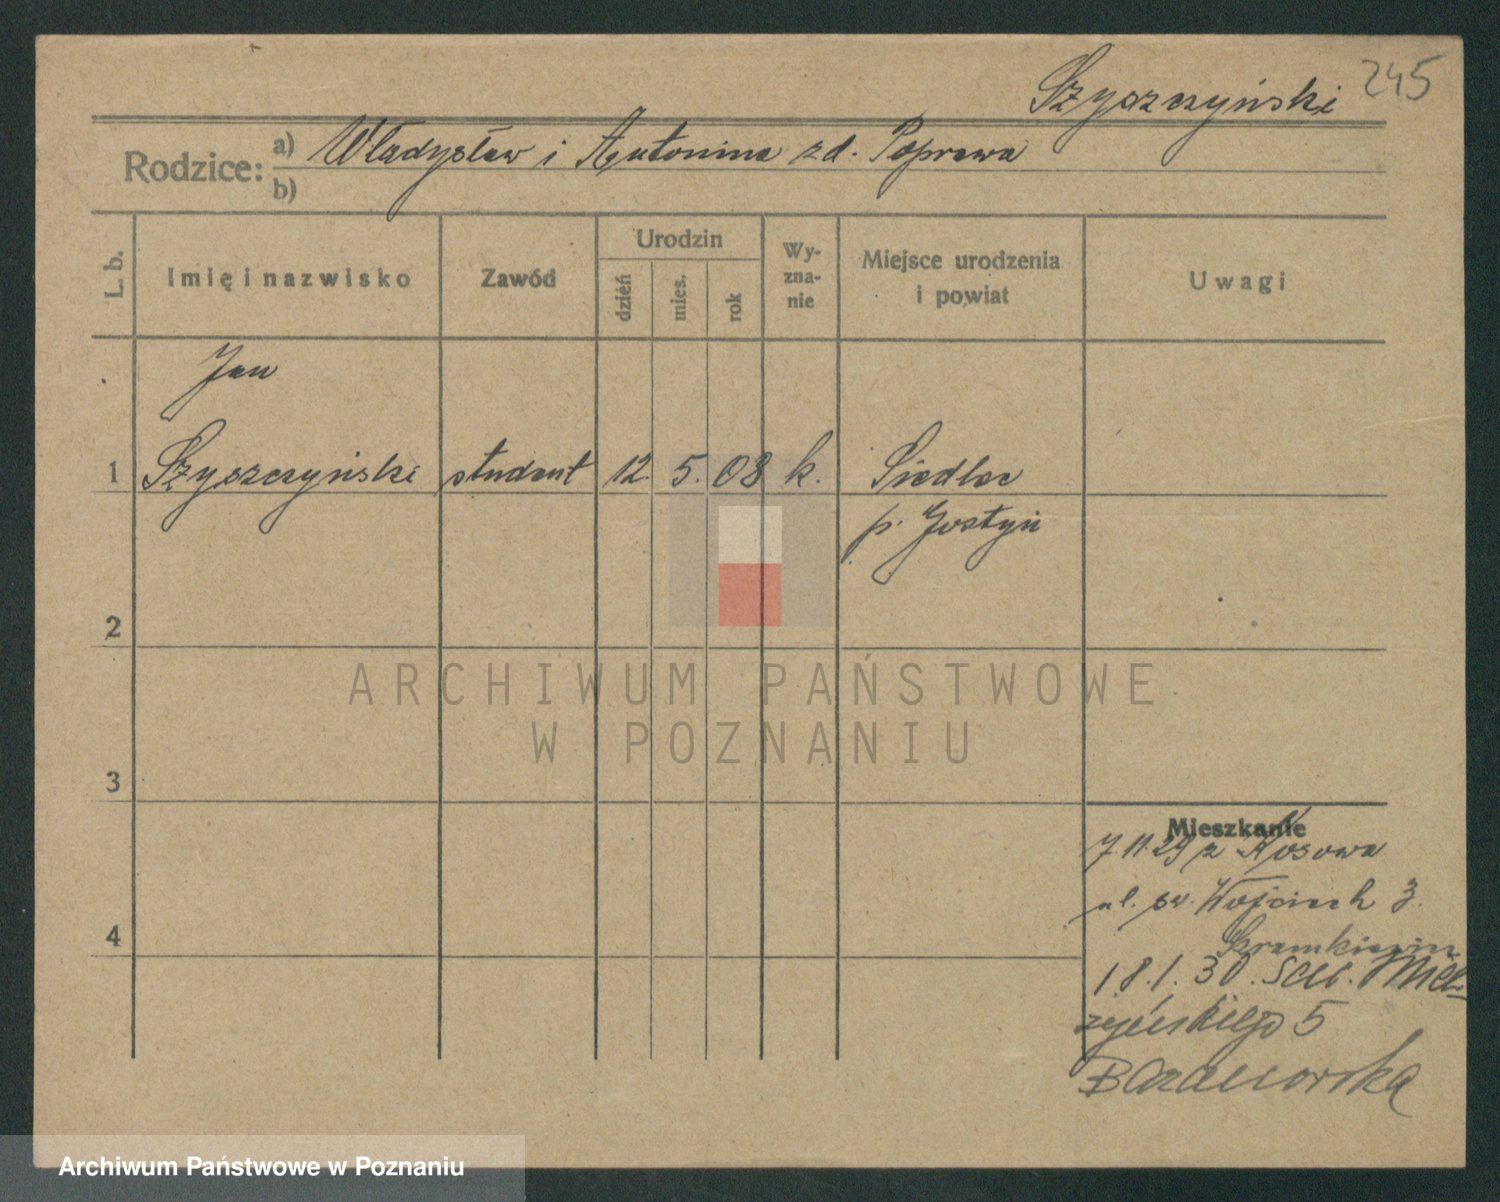 Szyszczyński 245
Rodzice: a) Władysław i Antonina zd. Poprawa
b)
L. b.
Imię i nazwisko
Zawód
Urodzin
dzień
mies.
rok
Wy-
zna-
nie
Miejsce urodzenia
i powiat
Uwagi
Jan
1 Szyszczyński student 12. 5. 08 k. Siedlec
p. Gostyń
2
ARCHIWUM PAŃSTWOWE
W POZNANIU
3
Mieszkanie
7.11.29 z Kosowa
4
ul. św. Wojciech 3.
18.1.30. Sew. Miel-
żyńskiego 5
Baranowska
Archiwum Państwowe w Poznaniu